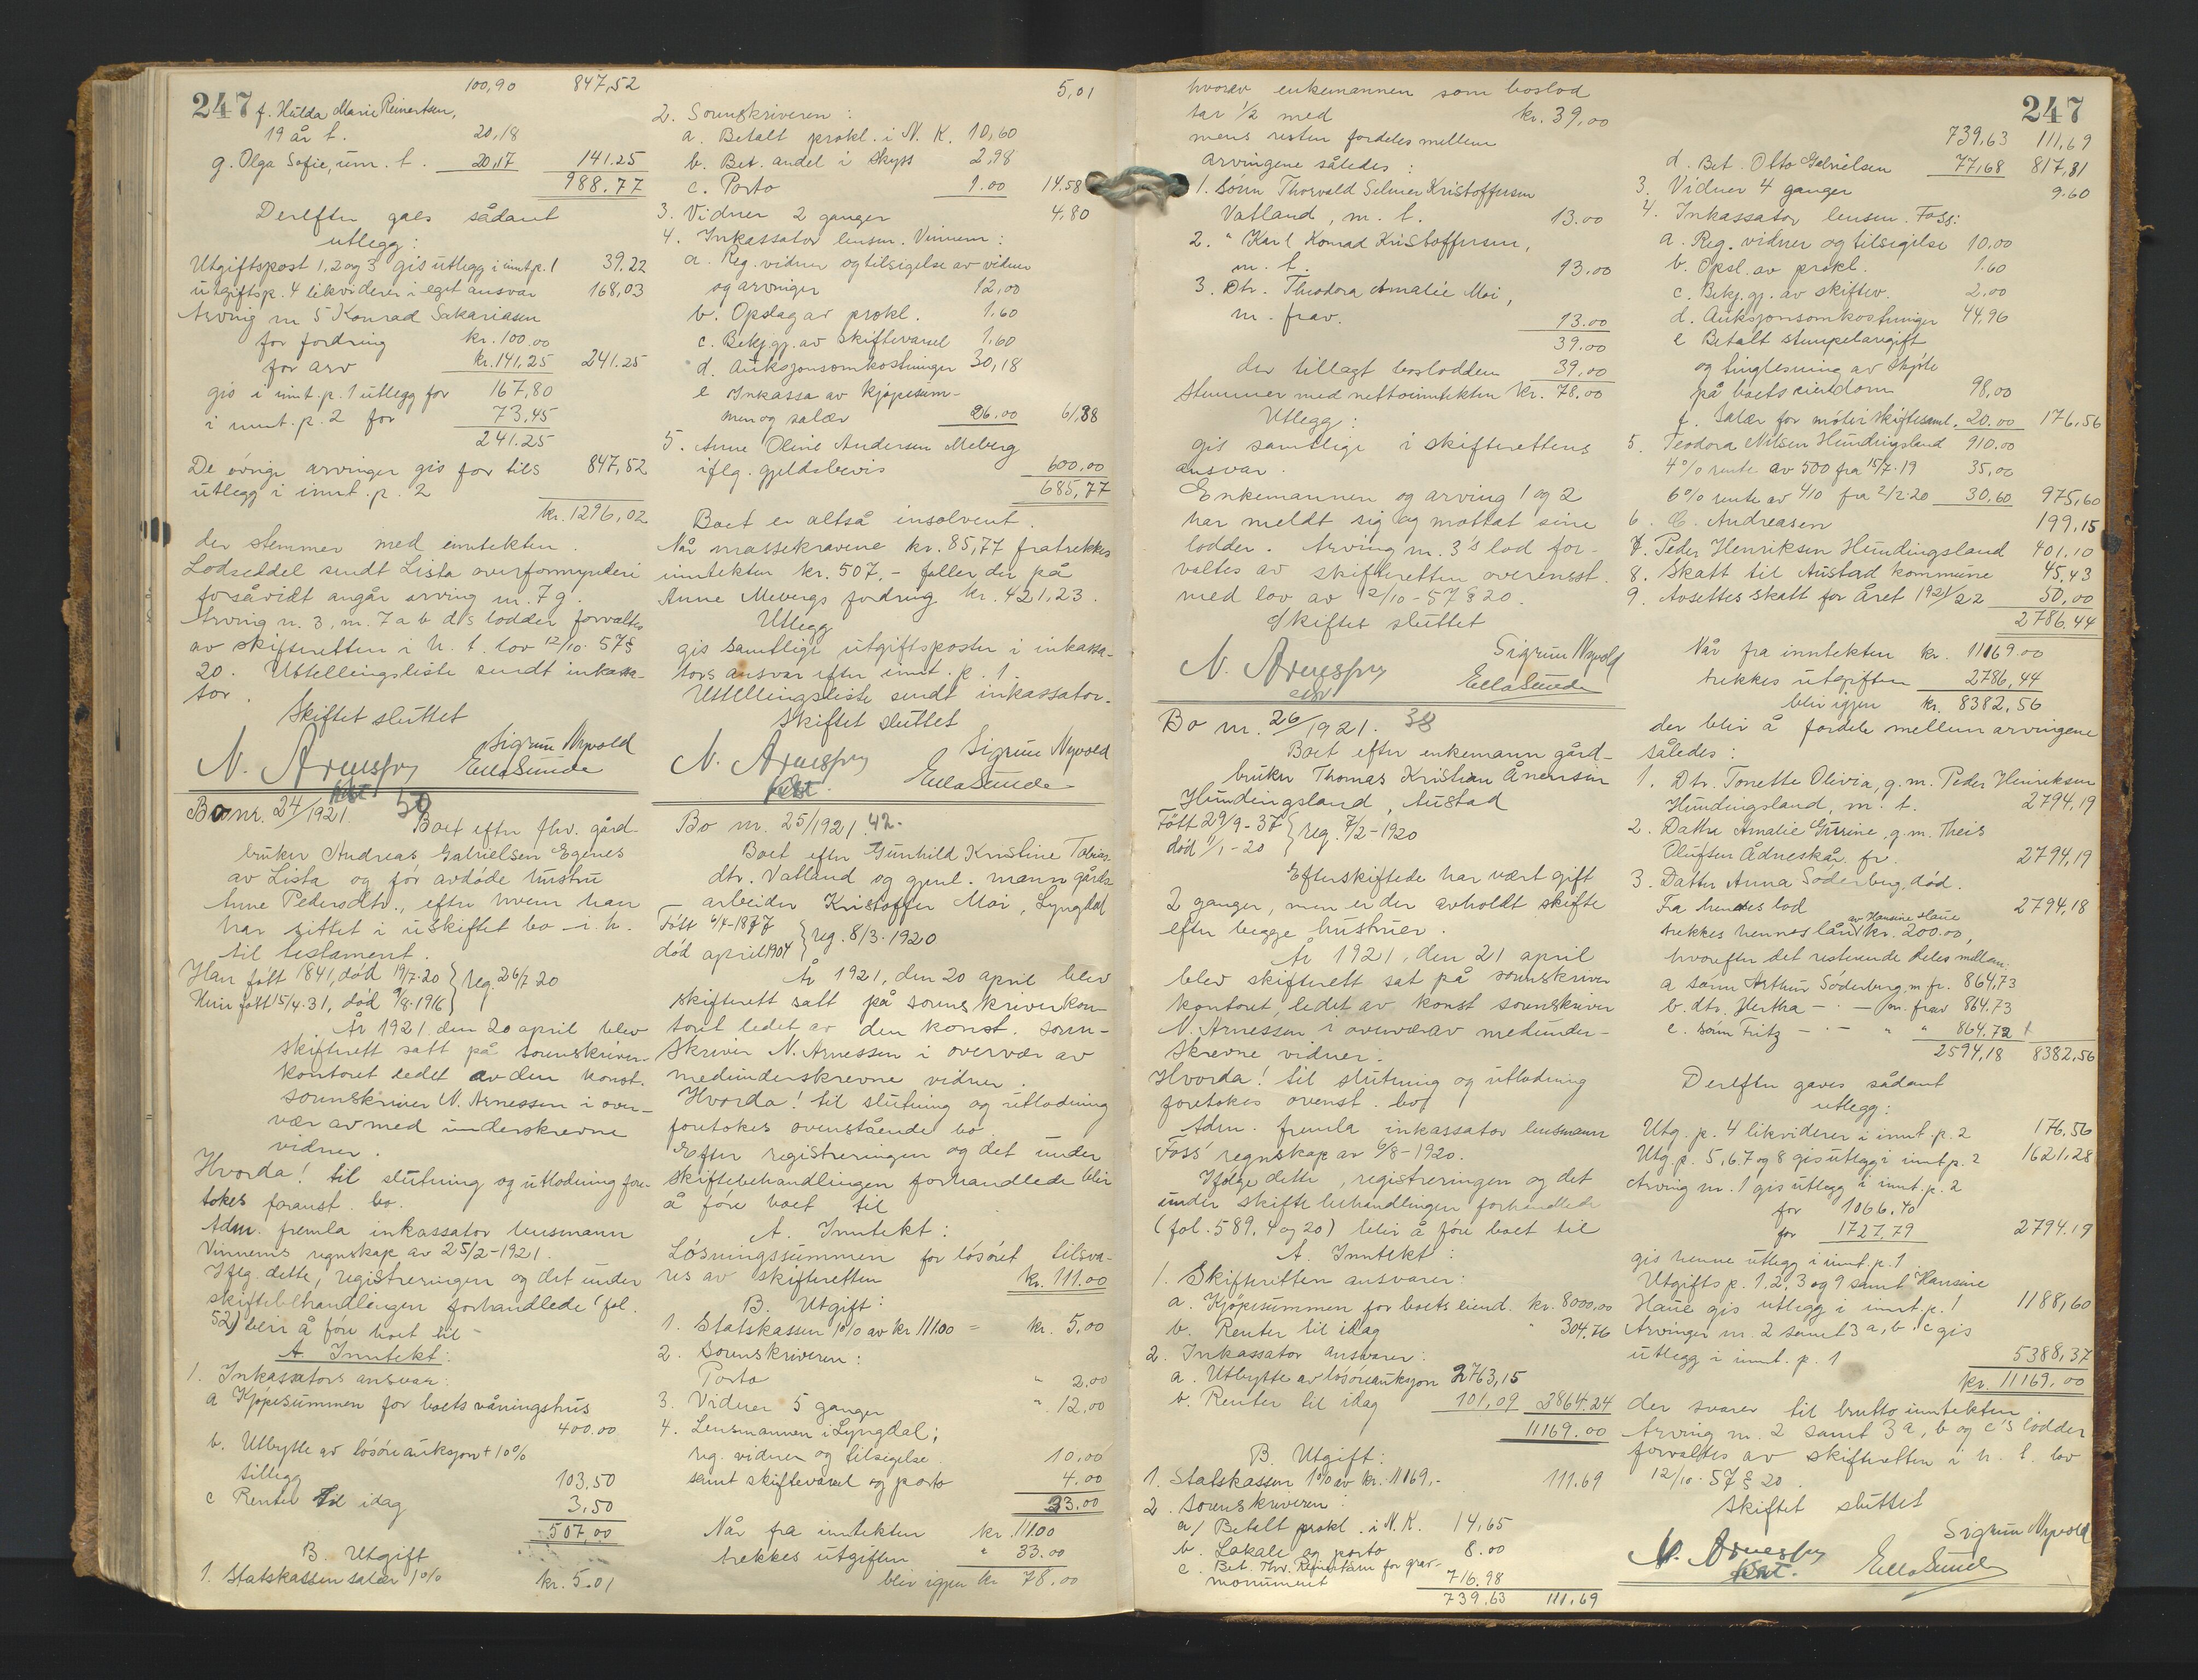 100,90 847,52
247 f. Hulda Marie Reinertsen,
19 år t. 20,18
g. Olga Sofie, um. t. 20,17 141.25
988.77
Derefter gaes sådant
utlegg:
Utgiftspost 1, 2 og 3 gis utlegg i innt.p. 1 39.22
utgiftsp. 4 likviderer i eget ansvar 168,03
Arving nr 5 Konrad Sakariasen
for fordring kr. 100.00
for arv kr. 141,25 241.25
gis i innt. p. 1 utlegg for 167,80
i innt. p. 2 for 73.45
241.25
De øvrige arvinger gis for tils 847,52
utlegg i innt. p. 2
kr. 1296,02
der stemmer med inntekten.
Lodseddel sendt Lista overformynderi
forsåvidt angår arving nr. 7 g.
Arving n. 3, nr. 7 a b d's lodder forvaltes
av skifteretten i h. t. lov 12/10 57 §
20. Utstellingsliste sendt inkassa-
tor.
Skiftet sluttet
N. Arnessen
Sigrun Nyvold
Ella Sunde
kst.
Bo nr. 24/1921. 50
Boet efter fhv. gård-
bruker Andreas Gabrielsen Egenes
av Lista og før avdøde hustru
Anne Pedersdtr., efter hvem han
har sittet i uskiftet bo i h.
til testament.
Han født 1841, død 19/7-20 } reg. 26/7 20
Hun født 15/4.31, død 9/8.1916 }
År 1921 den 20 april blev
skifterett satt på sorenskriver-
kontoret ledet av den konst.
sorenskriver N. Arnessen i over-
vær av med underskrevne
vidner.
Hvorda! til slutning og utlodning fore-
tokes foranst. bo.
Adm. fremla inkassator lensmann
Vinnems regnskap av 25/2-1921.
Iflg. dette, registreringen og det under
skiftebehandlingen forhandlede (fol.
52) blir å føre boet til
A. Inntekt:
1. Inkassators ansvar:
a Kjøpesummen for boets våningshus
400.00
b. Utbytte av løsøreauksjon + 10%
tillegg 103,50
c Renter til idag 3,50
507,00
B. Utgift
1. Statskassen salær 1% kr. 5.01
5,01
2. Sorenskriveren:
a. Betalt prokl. i N. K. 10,60
b. Bet. andel i skyss 2,98
c. Porto 1.00 14.58
3. Vidner 2 ganger 4,80
4. Inkassator lensm. Vinnem:
a. Reg. vidner og tilsigelse av vidner
og arvinger 12,00
b. Opslag av prokl. 1.60
c. Bekj.gj. av skiftevarsel 1,60
d. Auksjonsomkostninger 30,18
e Inkassa av kjøpesum-
men og salær 26.00 61,38
5. Anne Oline Andersen Meberg
iflg. gjeldsbevis 600,00
685,77
Boet er altså insolvent.
Når massekravene kr. 85,77 fratrekkes
inntekten kr. 507.- faller der på
Anne Mebergs fordring kr. 421,23.
Utlegg
gis samtlige utgiftsposter i inkassa-
tors ansvar efter innt. p. 1.
Utstillingsliste sendt inkassator.
Skiftet sluttet
N. Arnessen
kst.
Sigrun Nyvold
Ella Sunde
Bo nr. 25/1921. 42.
Boet efter Gunhild Kristine Tobias-
dtr. Vatland og gjenl. mann gårds-
arbeider Kristoffer Moi, Lyngdal
Født 6/4-1877 } reg. 8/3. 1920
død april 1904 }
År 1921, den 20 april blev
skifterett satt på sorenskriverkon-
toret ledet av den konst. soren-
skriver N. Arnessen i overvær av
medunderskrevne vidner.
Hvorda! til slutning og utlodning
foretokes ovenstående bo
Efter registreringen og det under
skiftebehandlingen forhandlede blir
å føre boet til
A. Inntekt:
Løsningssummen for løsøret tilsva-
res av skifteretten kr. 111.00
B. Utgift:
1. Statskassen 1% av kr 111.00 = kr. 5,00
2. Sorenskriveren:
Porto " 2,00
3. Vidner 5 ganger " 12,00
4. Lensmannen i Lyngdal;
reg. vidner og tilsigelse 10,00
samt skiftevarsel og porto 4.00
33.00
Når fra inntekten kr. 111.00
trekkes utgiften " 33.00
blir igjen kr 78.00
hvorav enkemannen som boslod
tar 1/2 med kr. 39,00
mens resten fordeles mellem
arvingene således:
1. Sønn Thorvald Selmer Kristoffersen
Vatland, m. t. 13.00
2. " Karl Konrad Kristoffersen,
m. t. 13.00
3. Dtr. Theodora Amalie Moi,
m. frav. 13.00
39.00
der tillagt boslodden 39.00
stemmer med nettoinntekten kr. 78.00
Utlegg:
gis samtlige i skifterettens
ansvar.
Enkemannen og arving 1 og 2
har meldt sig og mottat sine
lodder. Arving nr. 3's lod for-
valtes av skifteretten overensst.
med lov av 12/10-57 § 20.
Skiftet sluttet
N. Arnessen
kst
Sigrun Nyvold
Ella Sunde
Bo nr. 26/1921. 38
Boet efter enkemann gård-
bruker Thomas Kristian Ånensen
Hundingsland, Austad
Født 29/9-37 } reg. 7/2-1920
død 1/1-20 }
Efterskiftede har vært gift
2 ganger, men er der avholdt skifte
efter begge hustruer.
År 1921, den 21 april
blev skifterett sat på sorenskriver
kontoret, ledet av konst sorenskriver
N. Arnessen i overvær av medunder-
skrevne vidner.
Hvorda! til slutning og utlodning
foretokes ovenst. bo
Adm. fremla inkassator lensmann
Foss' regnskap av 6/8-1920.
Ifølge dette, registreringen og det
under skiftebehandlingen forhandlede
(fol. 589, 4 og 20) blir å føre boet til
A. Inntekt:
1. Skifteretten ansvarer:
a. Kjøpesummen for boets eiend. kr. 8000,00
b. Renter til idag " 304.76
2. Inkassator ansvarer:
a. Utbytte av løsøreauksjon 2763,15
b. Renter til idag 101,09 2864.24
11169.00
B. Utgift:
1. Statskassen 1% av kr. 11169,- 111.69
2. sorenskriveren:
a/ Betalt prokl. i N. K. 14,65
b. Lokale og porto 8.00
c. Bet. Thv. Reinertsen for grav-
monument 716.98
739.63 111,69
247
739,63 111,69
d. Bet. Otto Gabrielsen 77,68 817,31
3. Vidner 4 ganger 9.60
4. Inkassator lensm. Foss:
a. Reg. vidner og tilsigelse 10,00
b. Opsl. av prokl. 1.60
c. Bekj.gj. av skiftev. 2,00
d. Auksjonsomkostninger 44,96
e Betalt stempelavgift
og tinglesning av skjøte
på boets eiendom 98,00
f. Salær for møter i skiftesaml. 20.00 176,56
5. Teodora Nilsen Hundingsland 910.00
4% rente av 500 fra 15/7.19 35,00
6% rente av 410 fra 2/2-20 30,60 975,60
6. C. Andreasen 199,15
7. Peder Henriksen Hundingsland 401.10
8. Skatt til Austad kommune 45,43
9. Avsettes skatt for året 1921/22 50,00
2786.44
Når fra inntekten kr. 11169.00
trekkes utgiften 2786,44
blir igjen kr. 8382,56
der blir å fordele mellem arvingene
således:
1. Dtr. Tonette Olivia, g. m. Peder Henriksen
Hundingsland, m. t. 2794,19
2. Datter Amalie Gurine, g. m. Theis
Olufsen Ådneskår fr. 2794,19
3. Datter Anna Søderberg, død.
Fra hendes lod 2794,18
av Hansine Haue
trekkes hennes lån kr. 200.00,
hvorefter det resterende deles mellem:
a sønn Arthur Søderberg, m fr. 864,73
b. dtr. Hertha — " — m. frav 864.73
c. sønn Fritz — " — " " 864.72
2594,18 8382,56
Derefter gaves sådant
utlegg:
Utg. p. 4 likviderer i innt. p. 2 176,56
Utg p. 5, 6, 7 og 8 gis utlegg i innt p. 2 1621,28
Arving nr. 1 gis utlegg i innt. p. 2
for 1066,40
for 1727,79 2794.19
gis henne utlegg i innt. p. 1
Utgifts p. 1, 2, 3 og 9 samt Hansine
Haue gis utlegg i innt. p. 1 1188,60
Arvinger nr. 2 samt 3 a, b, c gis
utlegg i innt. p. 1 5388,37
kr. 11169,00
der svarer til bruttoinntekten.
Arving nr. 2 samt 3 a, b og c's lodder
forvaltes av skifteretten i h. t. lov
12/10. 57 § 20.
Skiftet sluttet
N. Arnessen
kst.
Sigrun Nyvold
Ella Sunde